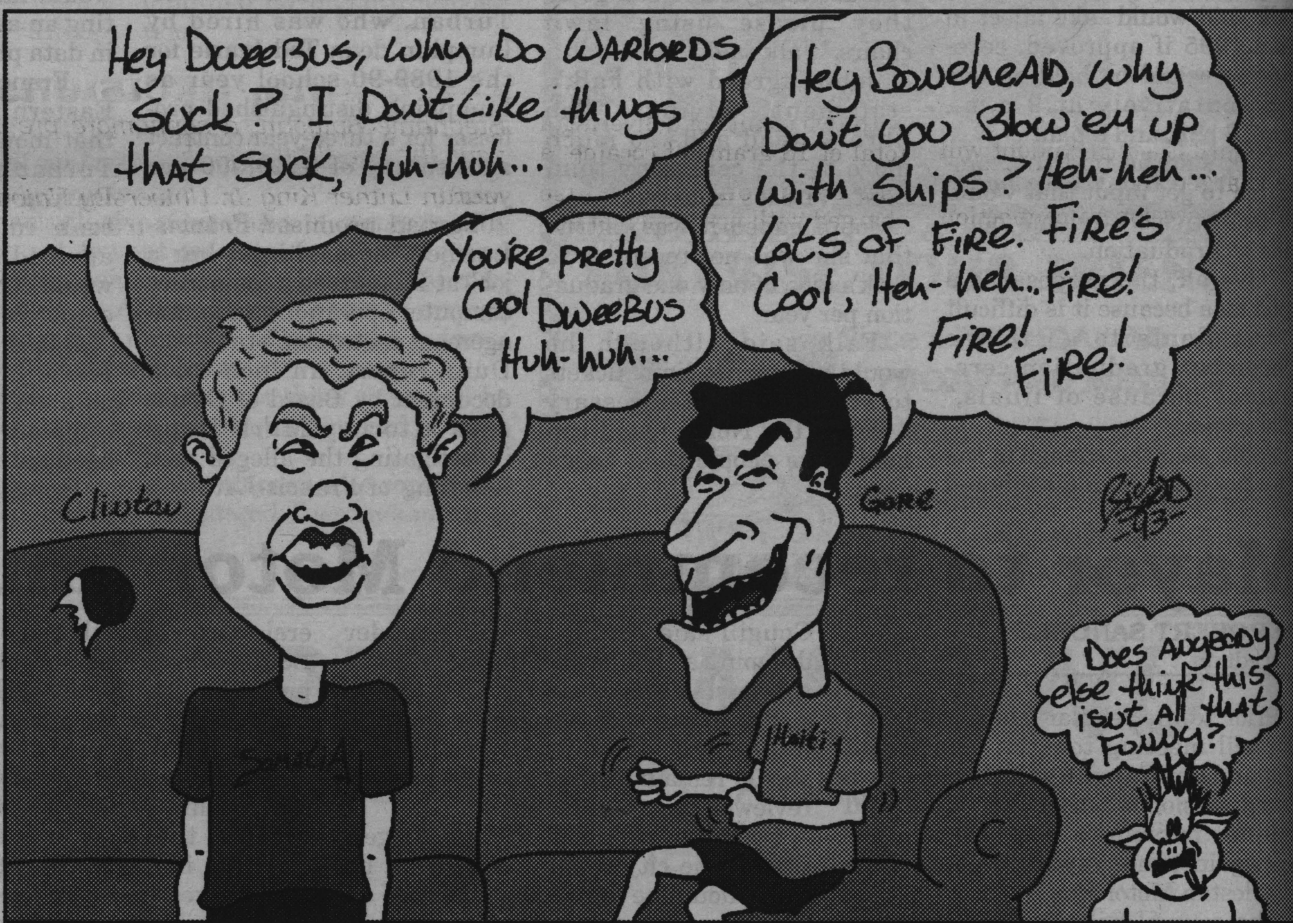 Hey DweeBus, why Do WARLORDS
Suck? I Don't Like things
that suck, Huh-huh...
Hey BoneheAD, why
Don't you Blow 'em up
with ships? Heh-heh...
Lots of FiRe. FiRe's
Cool, Heh-heh... FiRe!
FiRe!
FiRe!
You're pretty
Cool DweeBus
Huh-huh...
Clinton
Gore
-93-
SOMALIA
Haiti
Does Anybody
else think this
isn't All that
Funny?